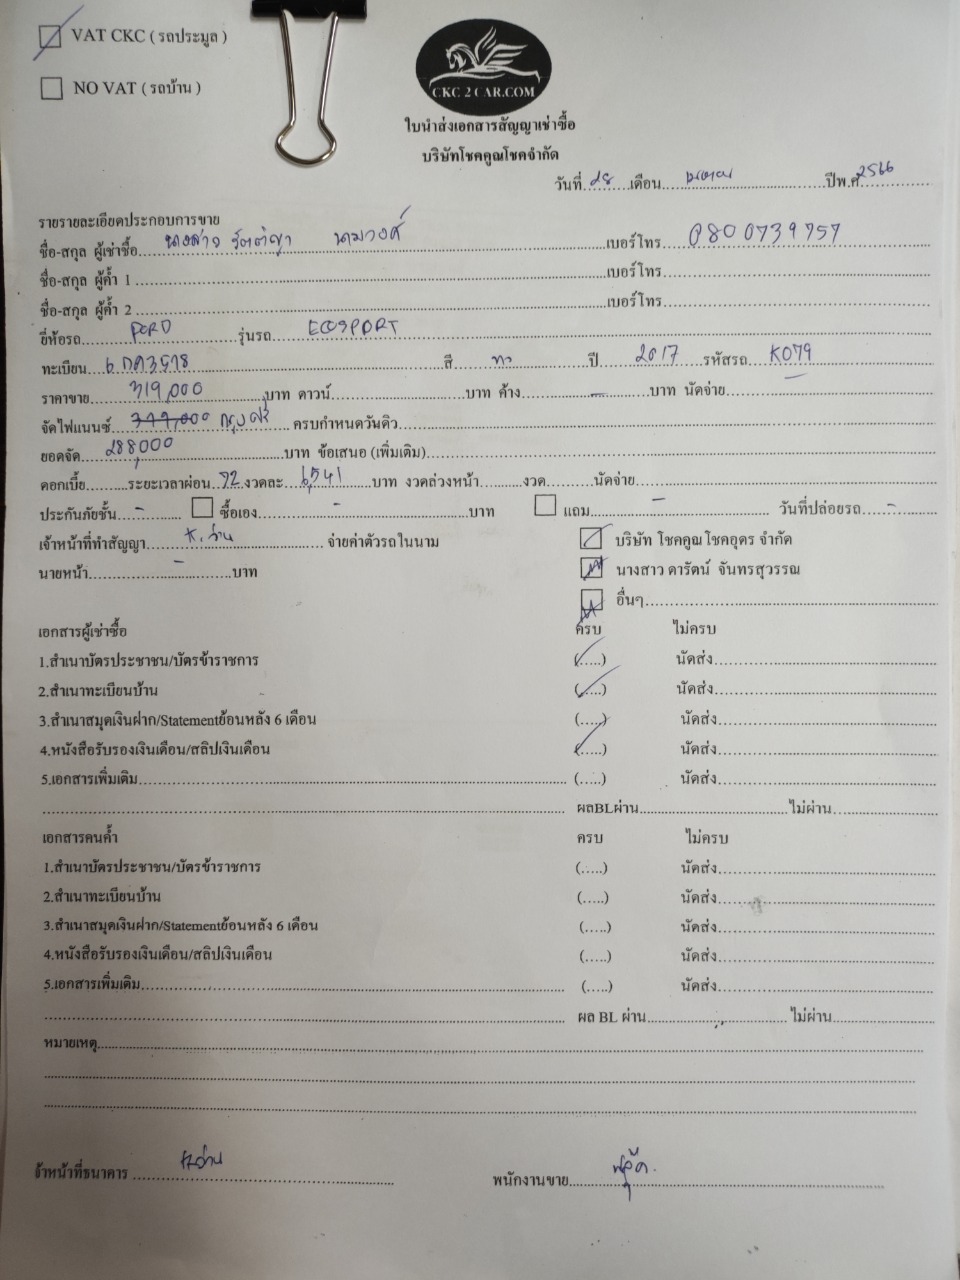 VAT CKC ( รถประมูล )
NO VAT ( รถบ้าน )
CKC 2 CAR.COM
ใบนำส่งเอกสารสัญญาเช่าซื้อ
บริษัทโชคคูณโชคจำกัด
วันที่ 28 เดือน เมษายน ปีพ.ศ. 2566
รายรายละเอียดประกอบการขาย
ชื่อ-สกุล ผู้เช่าซื้อ นางสาว นามวงศ์ เบอร์โทร 080 0739757
ชื่อ-สกุล ผู้ค้ำ 1 เบอร์โทร
ชื่อ-สกุล ผู้ค้ำ 2 เบอร์โทร
ยี่ห้อรถ FORD รุ่นรถ ECOSPORT
ทะเบียน สี เทา ปี 2017 รหัสรถ K079
ราคาขาย 319,000 บาท ดาวน์ บาท ค้าง - บาท นัดจ่าย -
จัดไฟแนนซ์ กรุงศรี ครบกำหนดวันดิว
ยอดจัด 288,000 บาท ข้อเสนอ (เพิ่มเติม)
ดอกเบี้ย ระยะเวลาผ่อน 72 งวดละ 6,541 บาท งวดล่วงหน้า งวด นัดจ่าย
ประกันภัยชั้น - ซื้อเอง - บาท แถม - วันที่ปล่อยรถ -
เจ้าหน้าที่ทำสัญญา จ่ายค่าตัวรถในนาม บริษัท โชคคูณโชคอุดร จำกัด
นายหน้า - บาท นางสาว ดารัตน์ จันทรสุวรรณ
อื่นๆ
เอกสารผู้เช่าซื้อ ครบ ไม่ครบ
1.สำเนาบัตรประชาชน/บัตรข้าราชการ (.....) นัดส่ง
2.สำเนาทะเบียนบ้าน (.....) นัดส่ง
3.สำเนาสมุดเงินฝาก/Statementย้อนหลัง 6 เดือน (.....) นัดส่ง
4.หนังสือรับรองเงินเดือน/สลิปเงินเดือน (.....) นัดส่ง
5.เอกสารเพิ่มเติม (.....) นัดส่ง
ผลBLผ่าน ไม่ผ่าน
เอกสารคนค้ำ ครบ ไม่ครบ
1.สำเนาบัตรประชาชน/บัตรข้าราชการ (.....) นัดส่ง
2.สำเนาทะเบียนบ้าน (.....) นัดส่ง
3.สำเนาสมุดเงินฝาก/Statementย้อนหลัง 6 เดือน (.....) นัดส่ง
4.หนังสือรับรองเงินเดือน/สลิปเงินเดือน (.....) นัดส่ง
5.เอกสารเพิ่มเติม (.....) นัดส่ง
ผล BL ผ่าน ไม่ผ่าน
หมายเหตุ
จ้าหน้าที่ธนาคาร พนักงานขาย